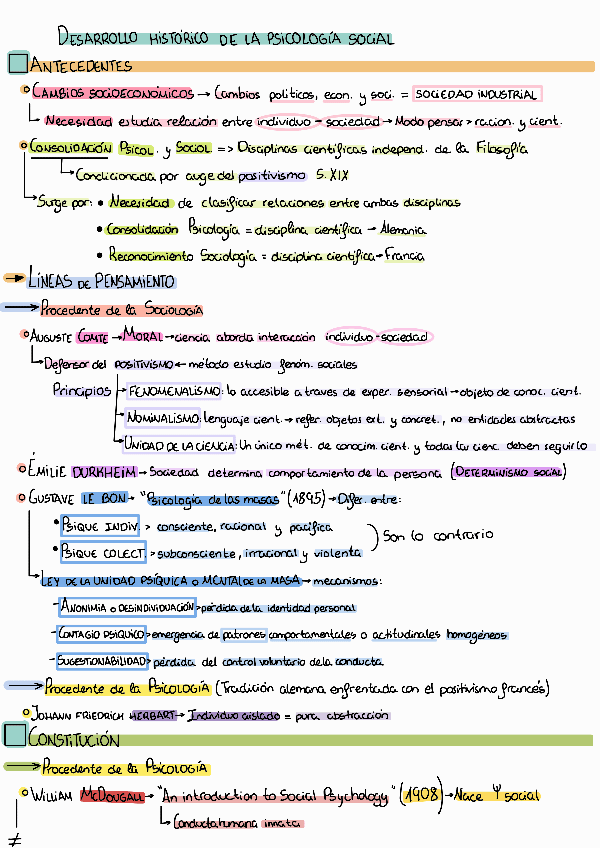 DESARROLLO HISTÓRICO DE LA PSICOLOGÍA SOCIAL
ANTECEDENTES
CAMBIOS SOCIOECONÓMICOS → Cambios políticos, econ. y soci. = SOCIEDAD INDUSTRIAL
Necesidad estudia relación entre individuo - sociedad → Modo pensar > racion. y cient.
CONSOLIDACIÓN PSICOL. y SOCIOL => Disciplinas científicas independ. de la Filosofía
Condicionada por auge del positivismo S. XIX
Surge por: • Necesidad de clasificar relaciones entre ambas disciplinas
• Consolidación Psicología = disciplina científica → Alemania
• Reconocimiento Sociología = disciplina científica → Francia
LÍNEAS DE PENSAMIENTO
Procedente de la SOCIOLOGÍA
AUGUSTE COMTE → MORAL → ciencia aborda interacción individuo - sociedad
Defensor del POSITIVISMO ← método estudio fenóm. sociales
Principios
FENOMENALISMO: lo accesible a traves de exper. sensorial → objeto de conoc. cient.
NOMINALISMO: lenguaje cient. → refer. objetos ext. y concret., no entidades abstractas
UNIDAD DE LA CIENCIA: Un único mét. de conocim. cient. y todas las cienc. deben seguirlo
ÉMILIE DURKHEIM → Sociedad determina comportamiento de la persona (DETERMINISMO SOCIAL)
GUSTAVE LE BON → "Psicología de las masas" (1895) → Difer. entre:
• PSIQUE INDIV. > consciente, racional y pacífica
• PSIQUE COLECT. > subconsciente, irracional y violenta
) Son lo contrario
LEY DE LA UNIDAD PSÍQUICA O MENTAL DE LA MASA → mecanismos:
- ANONIMIA O DESINDIVIDUACIÓN > pérdida de la identidad personal
- CONTAGIO PSÍQUICO > emergencia de patrones comportamentales o actitudinales homogéneos
- SUGESTIONABILIDAD > pérdida del control voluntario de la conducta
Procedente de la PSICOLOGÍA (Tradición alemana enfrentada con el positivismo francés)
JOHANN FRIEDRICH HERBART → Individuo aislado = pura abstracción
CONSTITUCIÓN
Procedente de la PSICOLOGÍA
WILLIAM McDOUGALL → "An introduction to Social Psychology" (1908) → Nace Ψ social
Conducta humana innata
≠